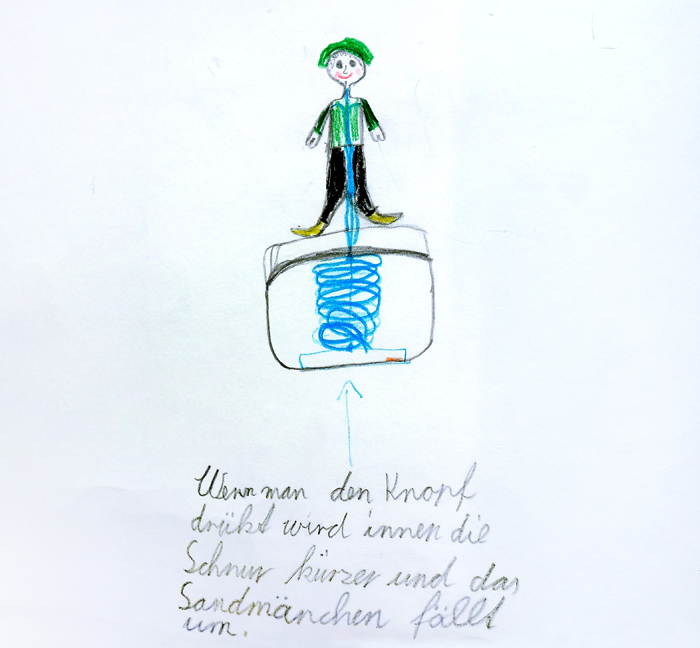 Wenn man den Knopf
drükt wird innen die
Schnur kürzer und das
Sandmänchen fällt
um.